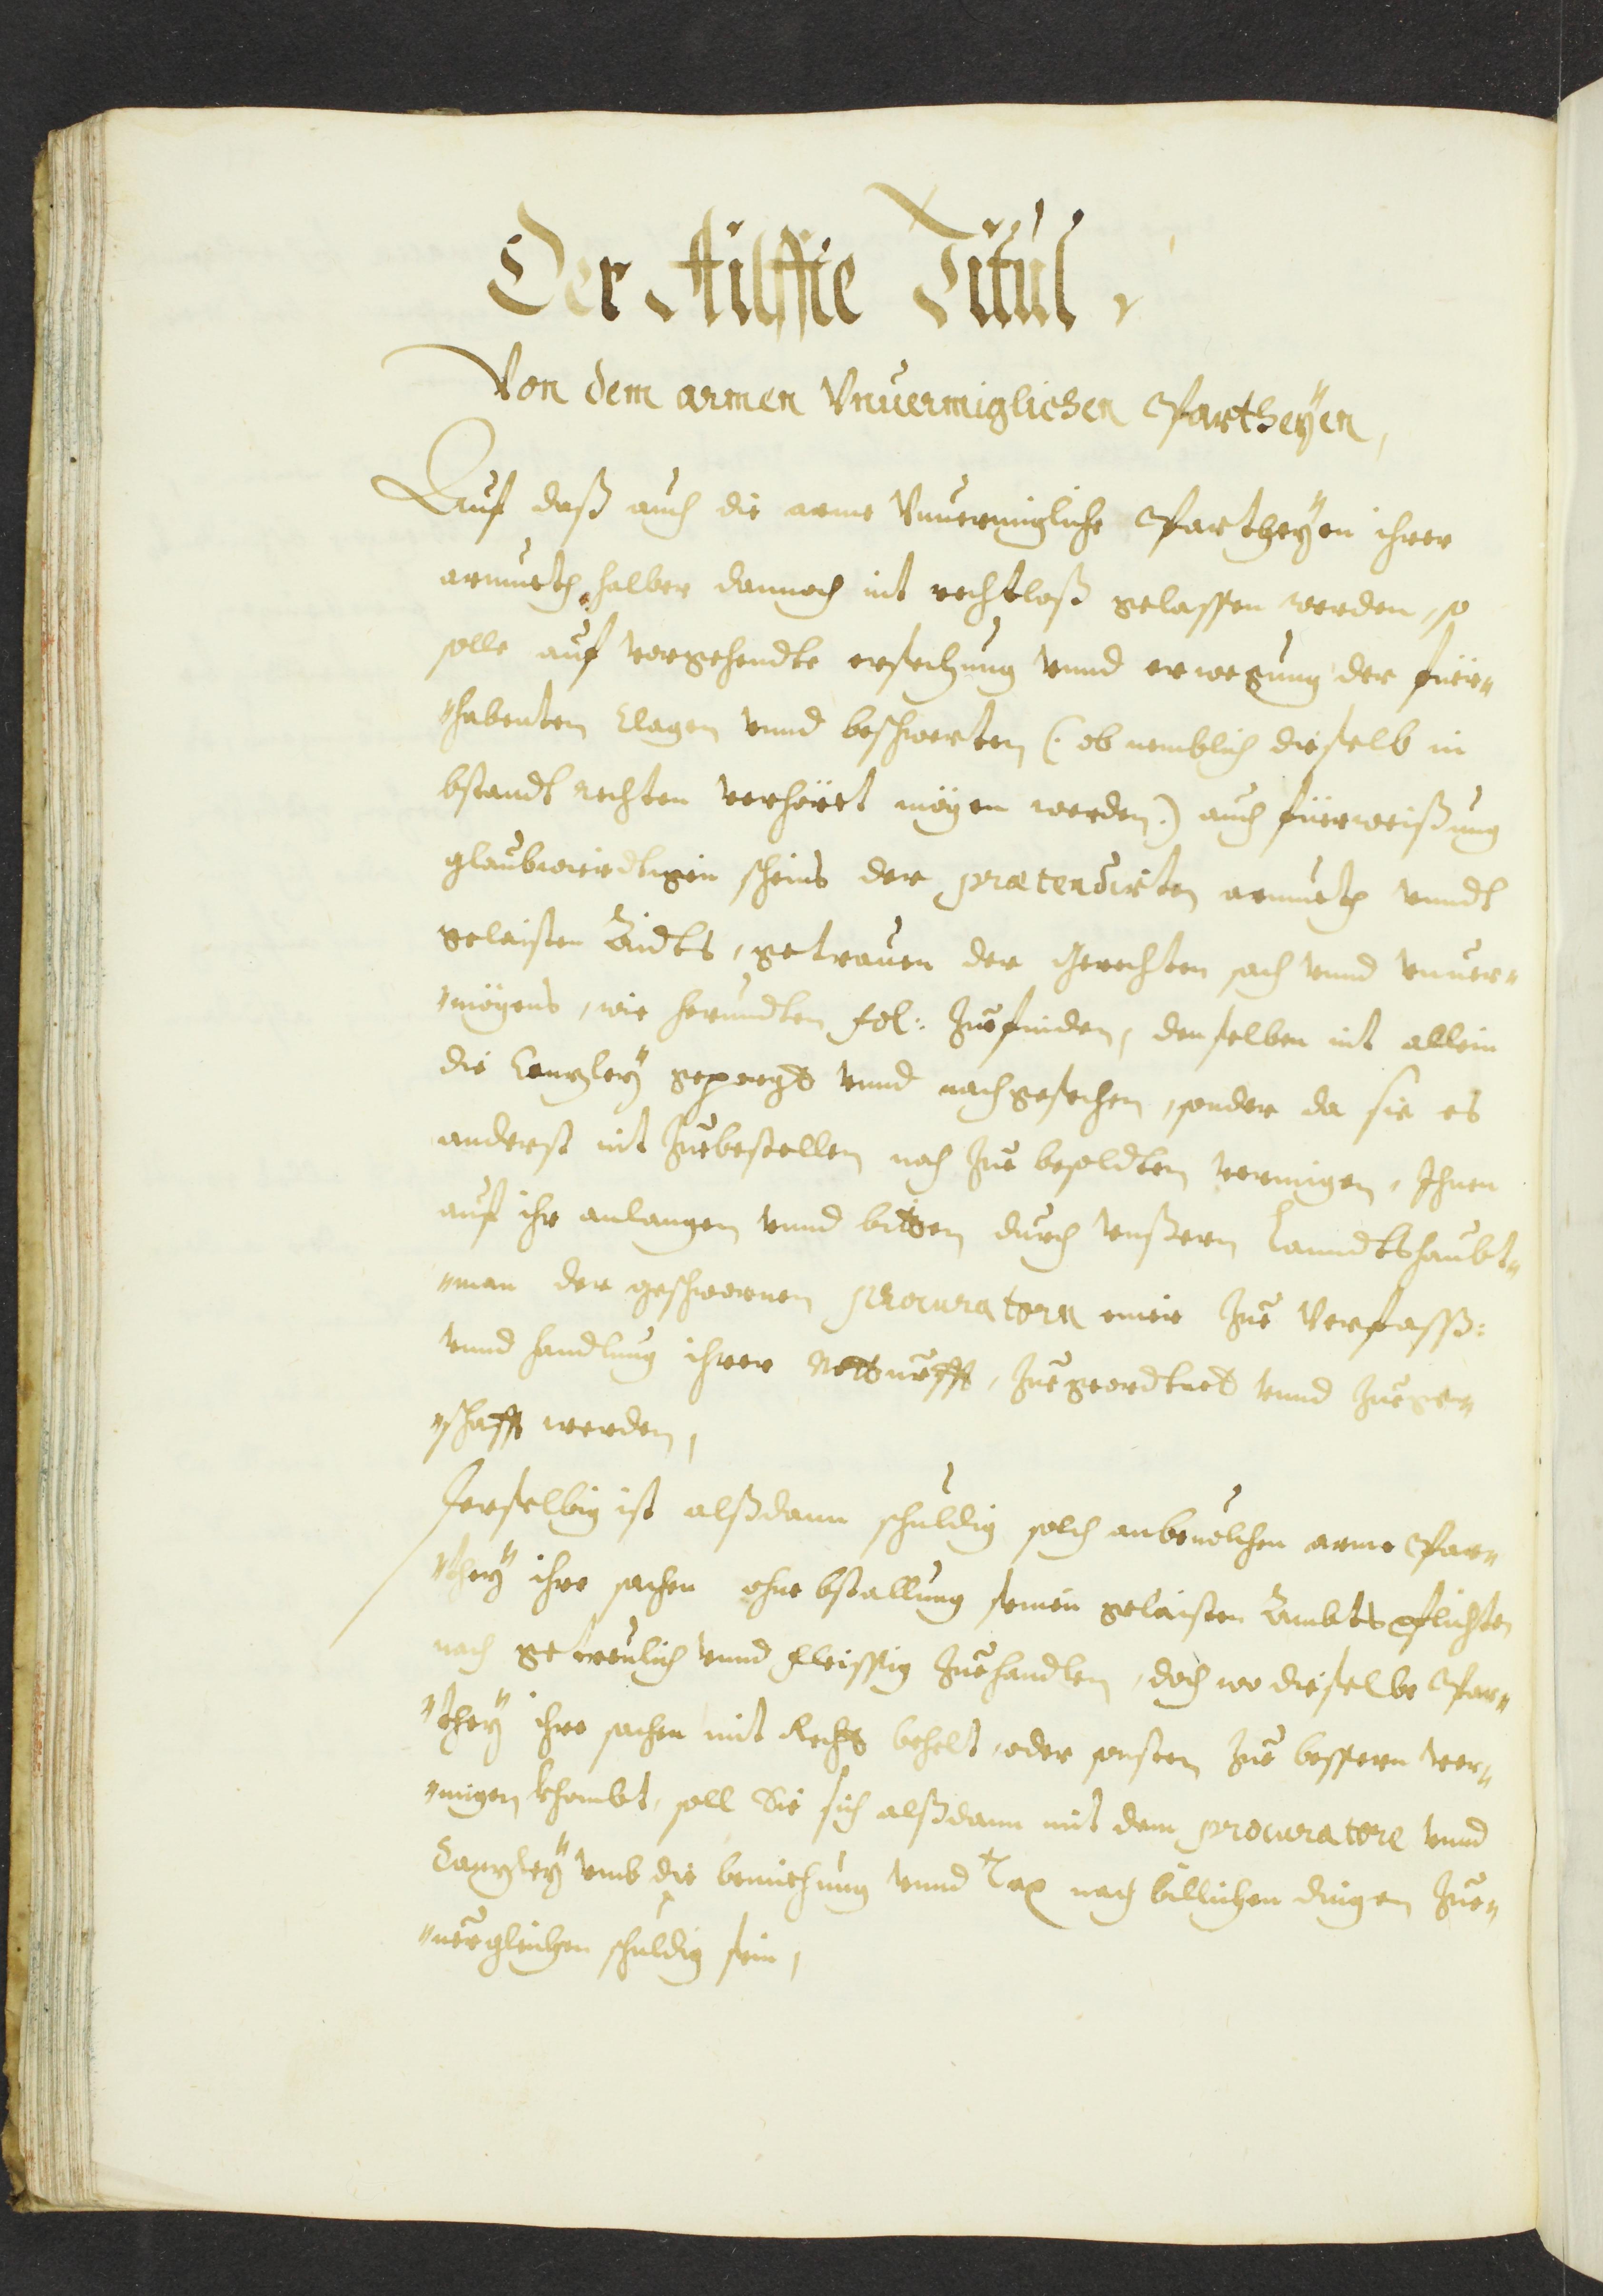 Der Ailffte Titul,
Von dem armen Vnuermiglichen Partheÿen,
Auf daß auch die arme Vnuermigliche Partheÿen ihrer
armueth halber dannoch nit rechtloß gelassen werden, so
solle auf vorgehendte ersechung vnnd erwegung der für„
„habenten Clagen vnnd beschwerten (: ob nemblich dieselb in
bstandt rechten verhört mögen werden :) auch fürweißung
glaubwirdtigen scheins der prætendirten armueth vnndt
gelaisten Aidts, getrauen der Gerechten sach vnnd vnuer„
„mögens, wie herundten fol: zuefinden, denselben nit allein
die Canzleÿ geporgt vnnd nachgesechen, sonder da sie es
anderst nit zuebestellen noch zue besoldten vermigen, Ihnen
auf ihr anlangen vnnd bitten durch vnßern Lanndtshaubt„
„man der geschwornen procuratorn einer zue Verfass:
vnnd handlung ihrer Notturfft, zuegeordtnet vnnd zuege„
„schafft werden,
Derselbig ist alßdann schuldig solch anbeuolchen arme Par„
„theÿ ihre sachen ohne bstallung seinen gelaisten Ambtspflichten
nach getreulich vnnd fleissig zuehandlen, doch wo dieselbe Par„
„theÿ ihre sachen mit Recht behelt, oder sonsten zue bessern ver„
„migen khombt, soll Sie sich alßdann mit dem procuratore vnnd
Canzleÿ vmb die bemiehung vnnd Tax nach billichen dingen zue„
„uergleichen schuldig sein,